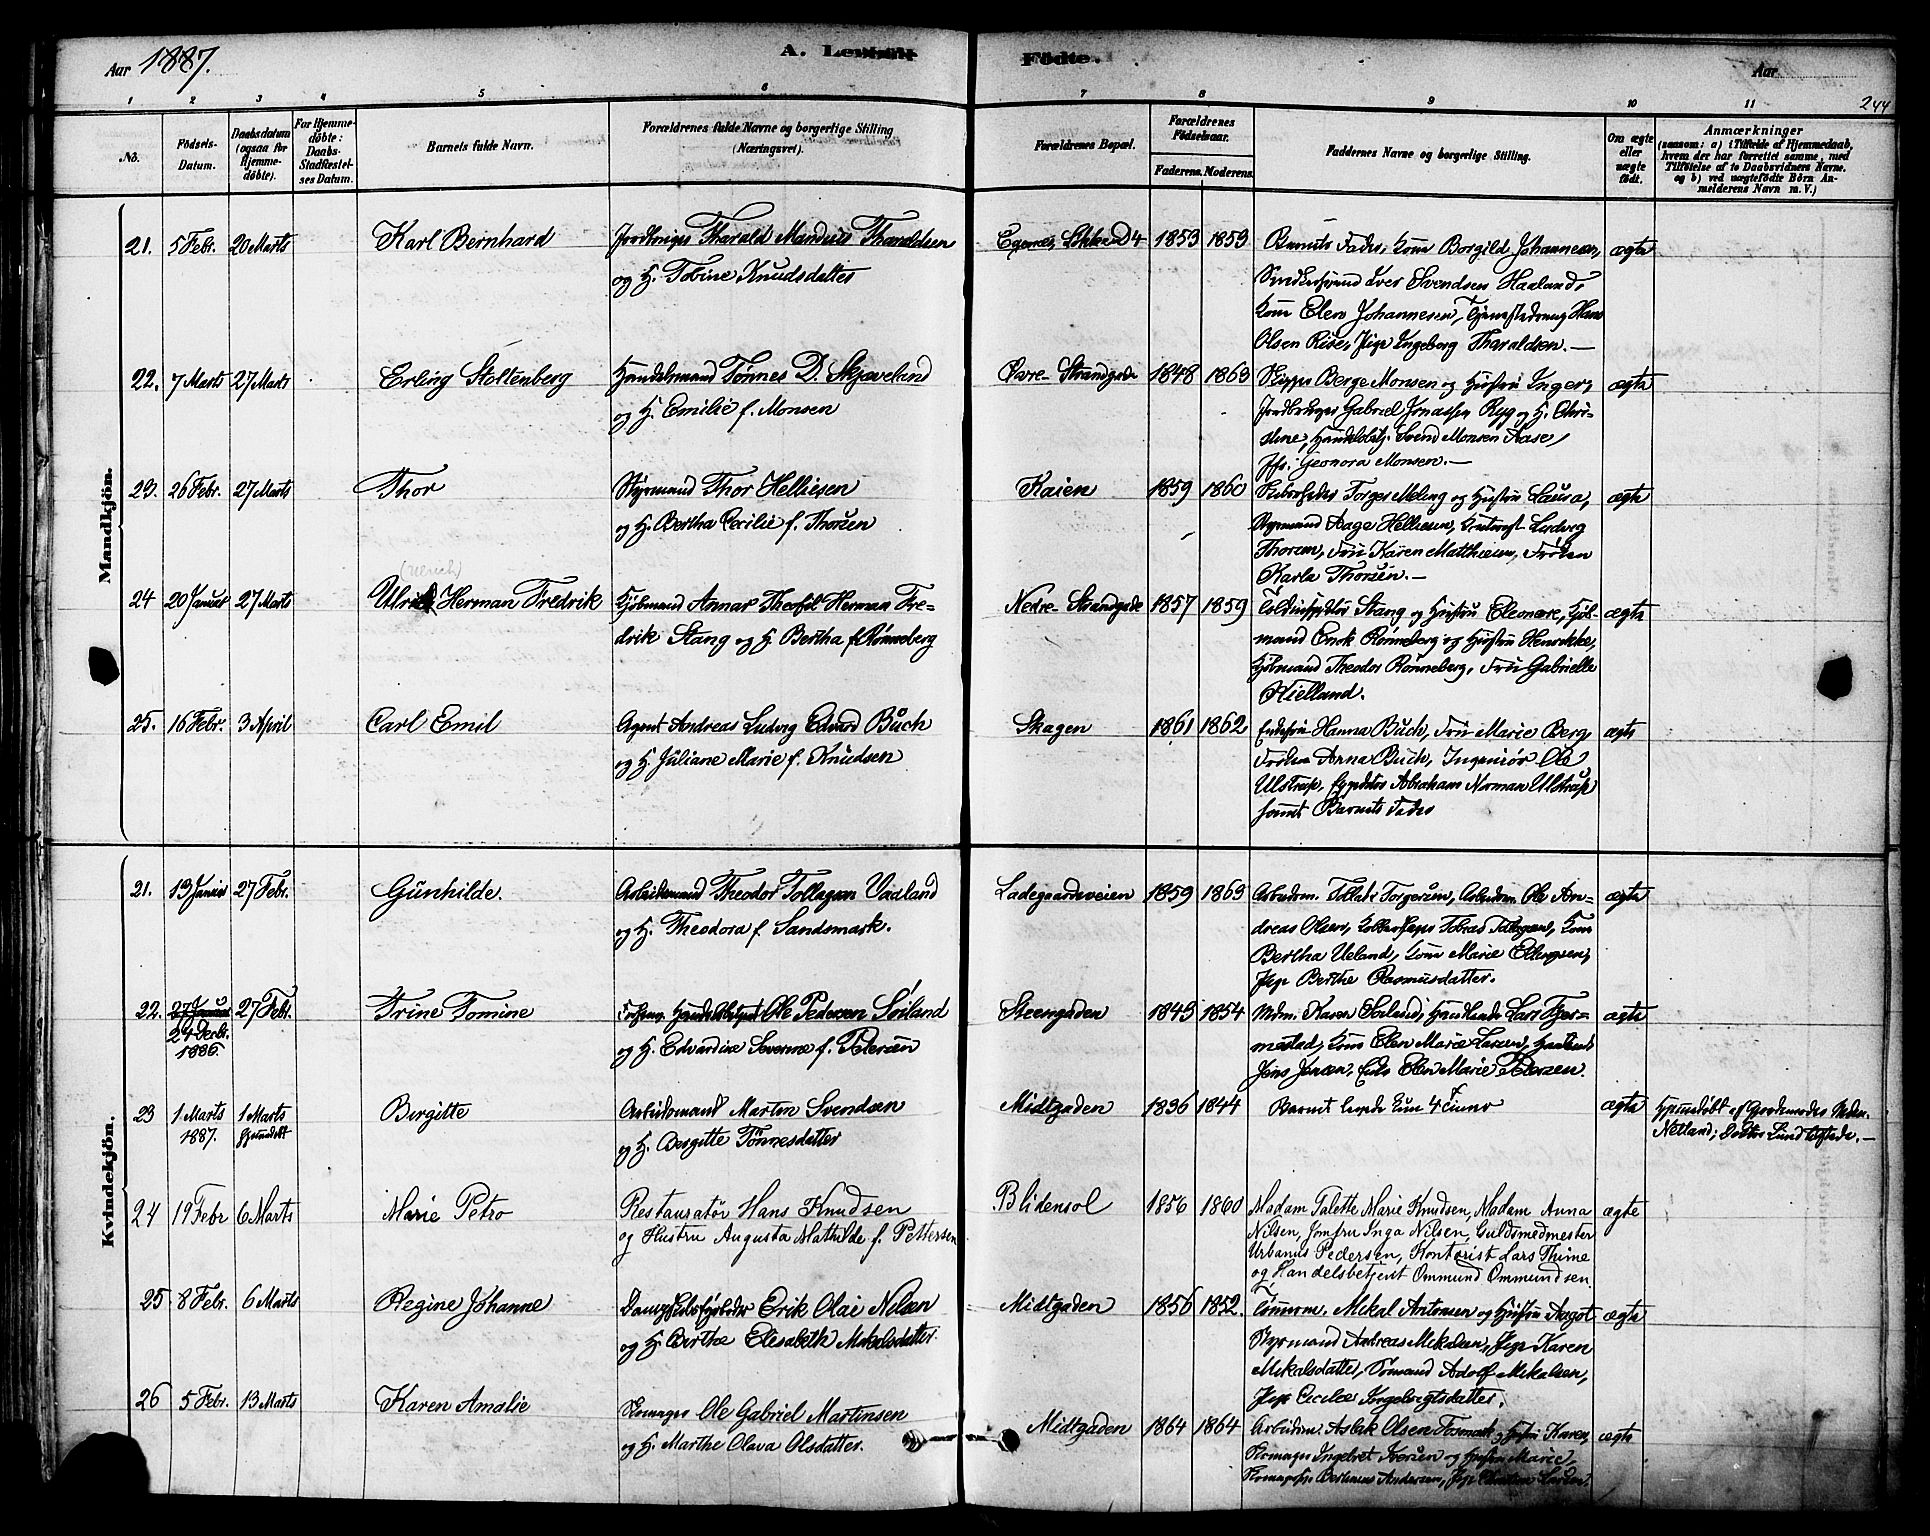 Aar 1887.
A. Levende
Födte.
Aar
244
1 2 3 4 5 6 7 8 9 10 11
No.
Födsels-Datum.
Daabsdatum (ogsaa for Hjemme-döbte).
For Hjemme-döbte: Daabs-Stadfæstel-ses Datum.
Barnets fulde Navn.
Forældrenes fulde Navne og borgerlige Stilling (Næringsvei).
Forældrenes Bopæl.
Forældrenes Födselsaar.
Faderens. Moderens.
Faddernes Navne og borgerlige Stilling.
Om ægte eller uægte födt.
Anmærkninger
(saasom: a) i Tilfælde af Hjemmedaab,
hvem der har forrettet samme, med
Tilföielse af to Daabsvidners Navne.
og b) ved uægtefödte Börn An-
melderens Navn m. V.)
Mandkjön.
21. 5 Febr. 20 Marts Karl Bernhard Jordbruger Tharald Mandius Tharaldsen Egenes, Løkke D4 1853 1859 Barnets Fader, Kone Borgild Johannesen, ægte
og H. Tobine Knudsdatter Iver Svendsen Haaland,
Kone Elen Johannesen, Hans
Olsen Riise, Pige Ingeborg Tharaldsen.—
22. 7 Marts 27 Marts Erling Stoltenberg Handelsmand Tønnes D. Skjæveland Øvre Strandgade 1848 1863 Skipper Berge Monsen og Hustru Inger, ægte
og H. Emilie f. Monsen Jordbruger Gabriel Jonassen Ryg og H. Chri-
stine, Handelsbetj. Svend Monsen Aase,
Jfr. Geonora Monsen.—
23. 26 Febr. 27 Marts Thor Styrmand Thor Helliesen Kaien 1859 1860 Skibsreder Torger Meling og Hustru Laura, ægte
og H. Bertha Cecilie f. Thorsen Styrmand Aage Helliesen, Ludvig
Thorsen, Fru Karen Matthiesen, Frøken
Karla Thorsen.—
(Ulrich)
24 20 Januar 27 Marts Ulrik Herman Fredrik Kjøbmand Annar Theofil Herman Fre- Nedre Strandgade 1857 1859 Toldinspektør Stang og Hustru Eleonore, Kjøb- ægte
drik Stang og H. Bertha f. Rønneberg mand Enok Rønneberg og Hustru Henrikke,
Kjøbmand Theodor Rønneberg, Fru Gabrielle
Kielland.
25. 16 Febr. 3 April Carl Emil Agent Andreas Ludvig Edvard Buch Skagen 1861 1862 Enkefru Hanna Buch, Fru Marie Berg, ægte
og H. Juliane Marie f. Knudsen Frøken Anna Buch, Ingeniør Ole
Ulstrup, Abraham Norman Ulstrup
samt Barnets Fader
Kvindekjön.
21. 13 Januar 27 Febr. Gunhilde. Arbeidsmand Theodor Tollagsen Vaaland Ladegaardsveien 1859 1863 Arbeidsm. Tollak Torgersen, Arbeidsm. Ole An- ægte
og H. Theodora f. Sandsmark. dreas Olsen, Tobias Tollagsen, Kone
Bertha Ueland, Kone Marie Ellingsen,
Pige Berthe Rasmusdatter.
22. 27 Januar 27 Febr. Trine Tomine Ole Pedersen Soiland Steengaden 1849 1854 Mdm. Karen Soiland, Handlende Lars Tjer- ægte
24 Decbr. 1886. og H. Edvardine Severine f. Petersen mestad, Kone Elen Marie Larsen,
Jens Jensen, Enke Elen Marie Petersen.
23 1 Marts 1887. 1 Marts Hjemmedøbt Birgitte Arbeidsmand Morten Svendsen Midtgaden 1836 1844 Barnet levede kun 4 Timer ægte Hjemmedøbt af Gjordemoder Madm.
og H. Bergitte Tønnesdatter Netland; Doktor Lund tilstede.—
24 19 Febr 6 Marts Marie Petro Restauratør Hans Knudsen Blidensol 1856 1860 Madam Talette Marie Knudsen, Madam Anna ægte
og Hustru Augusta Mathilde f. Pettersen Nilsen, Jomfru Inga Nilsen, Guldsmedmester
Urbanus Pedersen, Kontorist Lars Thime
og Handelsbetjent Ommund Ommundsen
25 8 Febr. 6 Marts Regine Johanne Dampskibsfyrbøder Erik Olai Nelsen Midtgaden 1856 1852. Tømrm. Mikal Antonsen og Hustru Aagot ægte
og H. Berthe Elisabeth Mikalsdatter. Styrmand Andreas Mikalsen, Pige Karen
Mikalsdatter, Sømand Adolf Mikalsen,
Pige Cecilie Ingebrigtsdatter.
26 5 Febr. 13 Marts Karen Amalie Skomager Ole Gabriel Martinsen Midtgaden 1864 1864 Arbeidsm. Aslak Olsen Fosmark og Hustru Karen, ægte
og H. Marthe Olava Olsdatter. Skomager Ingebret Iversen og Hustru Marie,
Skomagersv. Bertinius Andersen, Pige Larsen.